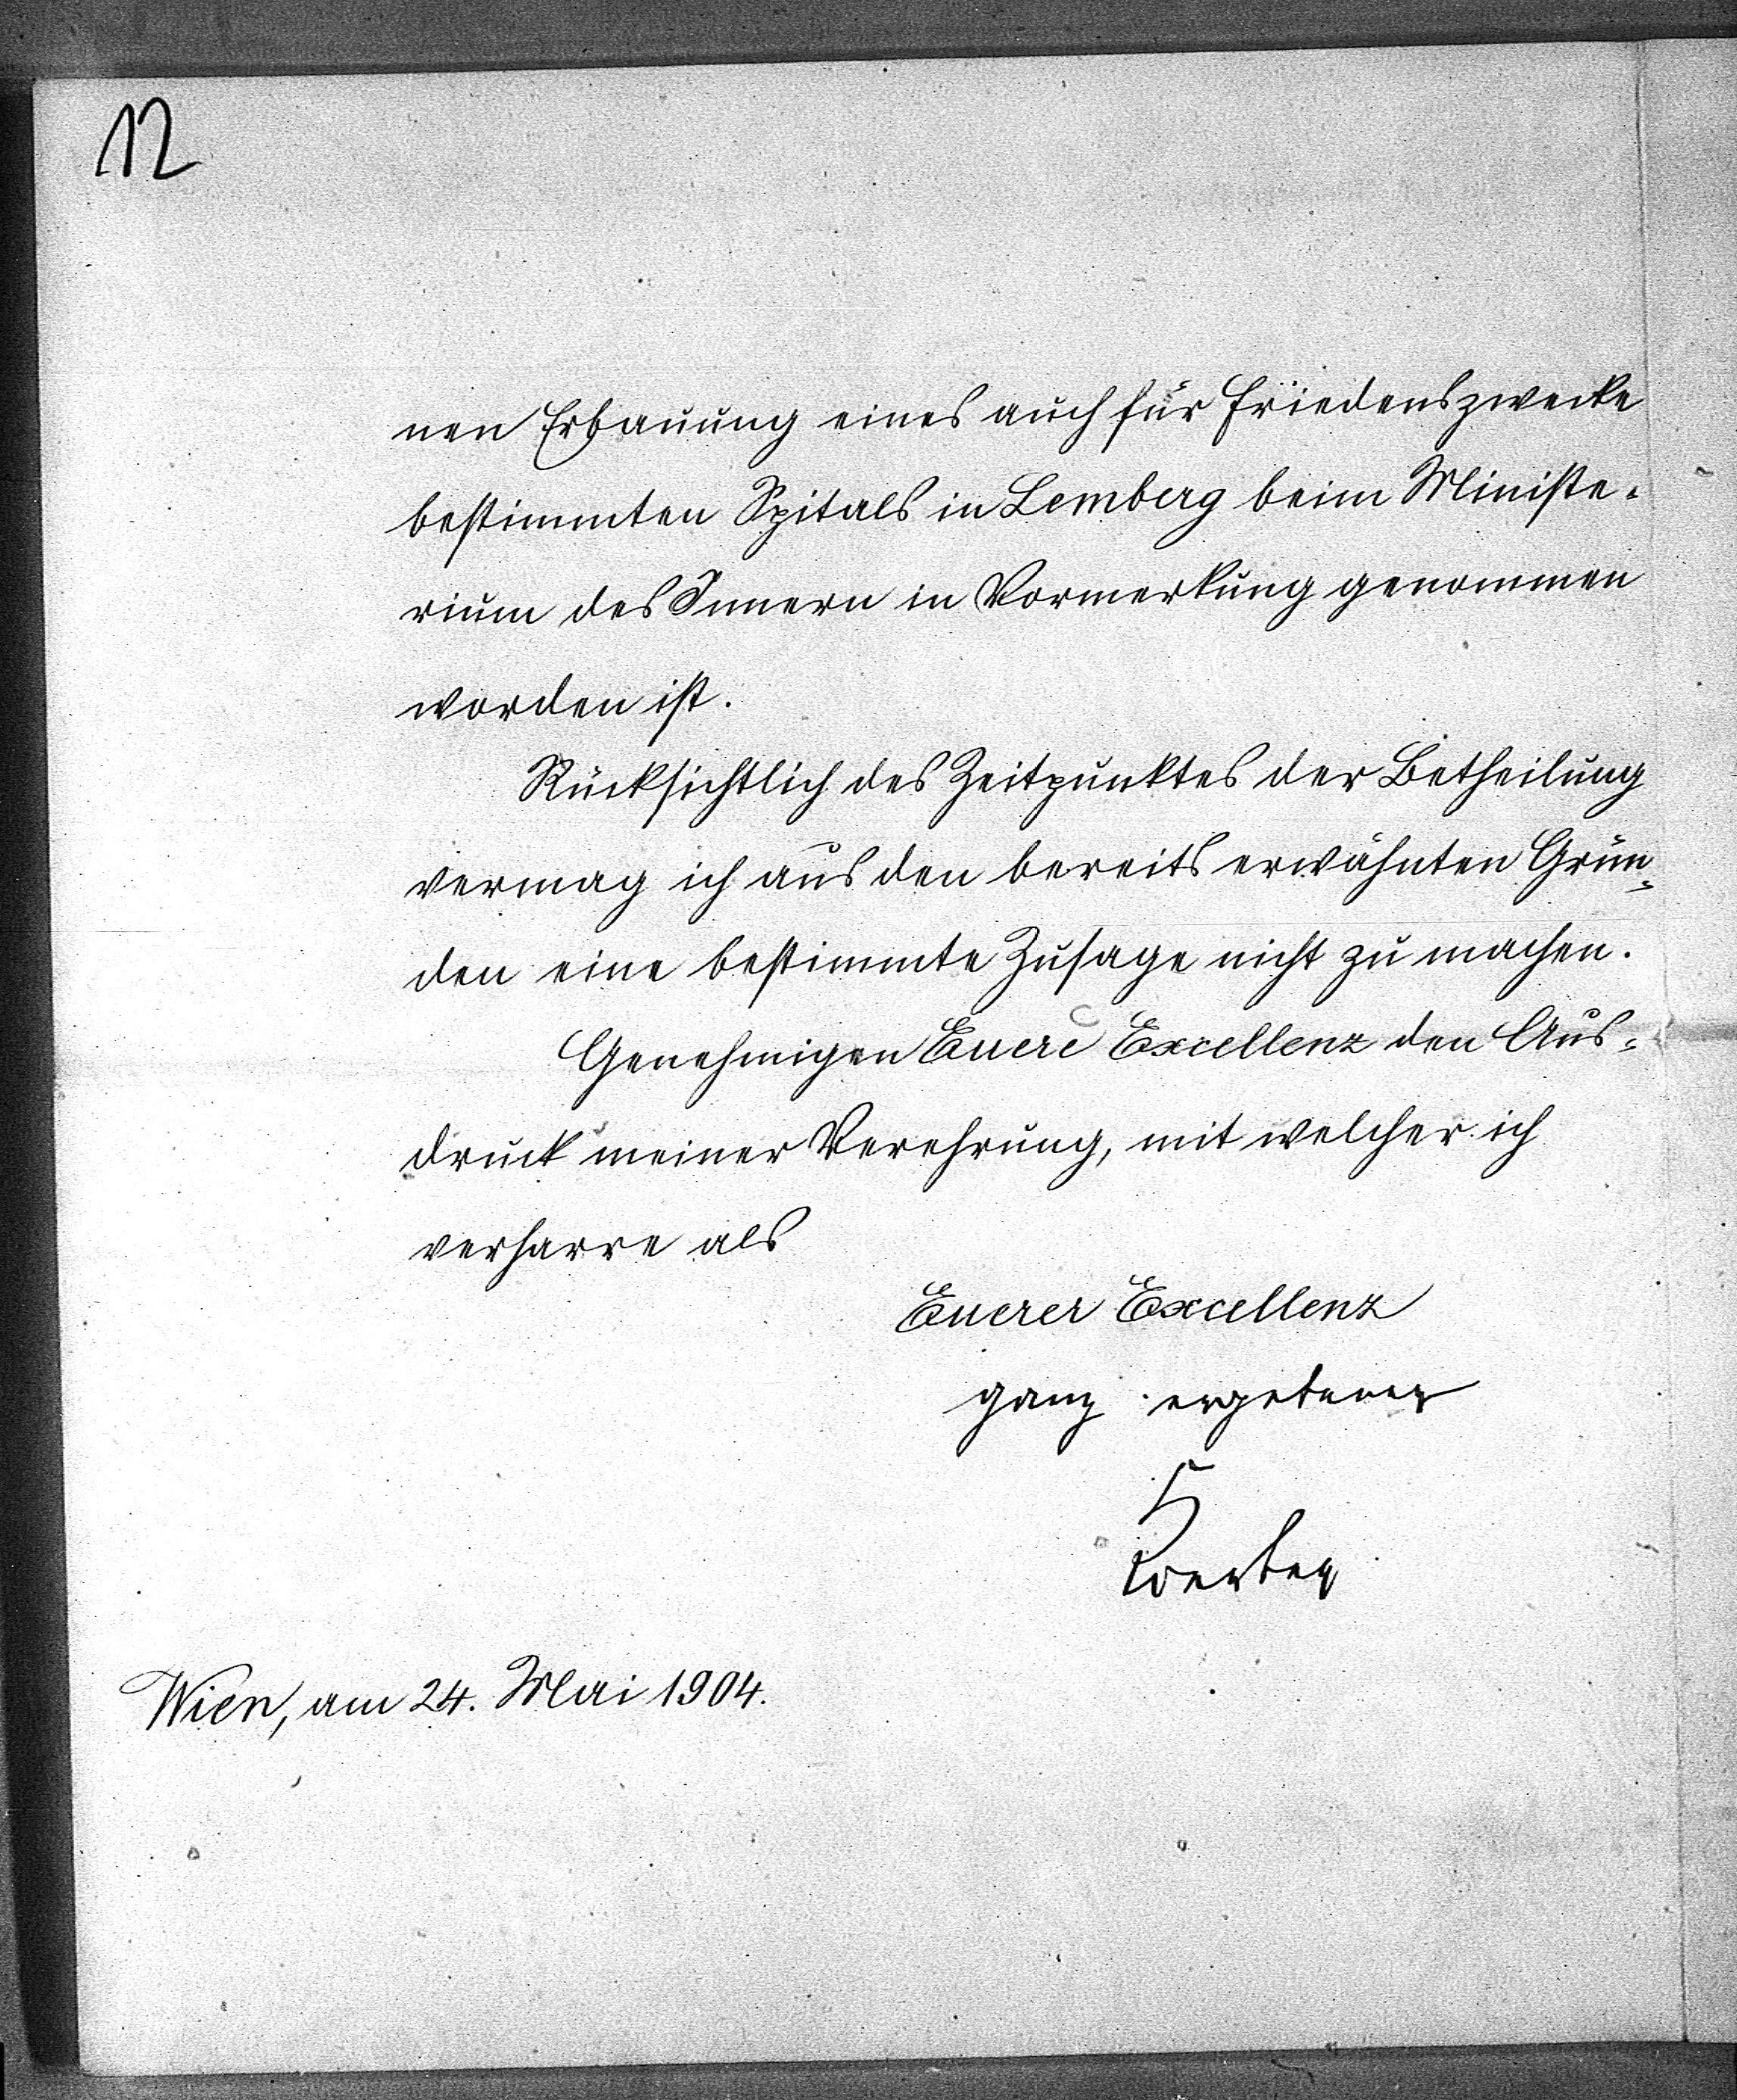 12
nen Erbauung eines auch für Friedenszwecke
bestimmten Spitals in Lemberg beim Ministe-
rium des Innern in Vormerkung genommen
worden ist.
Rücksichtlich des Zeitpunktes der Betheilung
vermag ich aus den bereits erwähnten Grün-
den eine bestimmte Zusage nicht zu machen.
Genehmigen Euere Excellenz den Aus-
druck meiner Verehrung, mit welcher ich
verharre als
Euerer Excellenz
ganz ergebener
Koerber
Wien, am 24. Mai 1904.